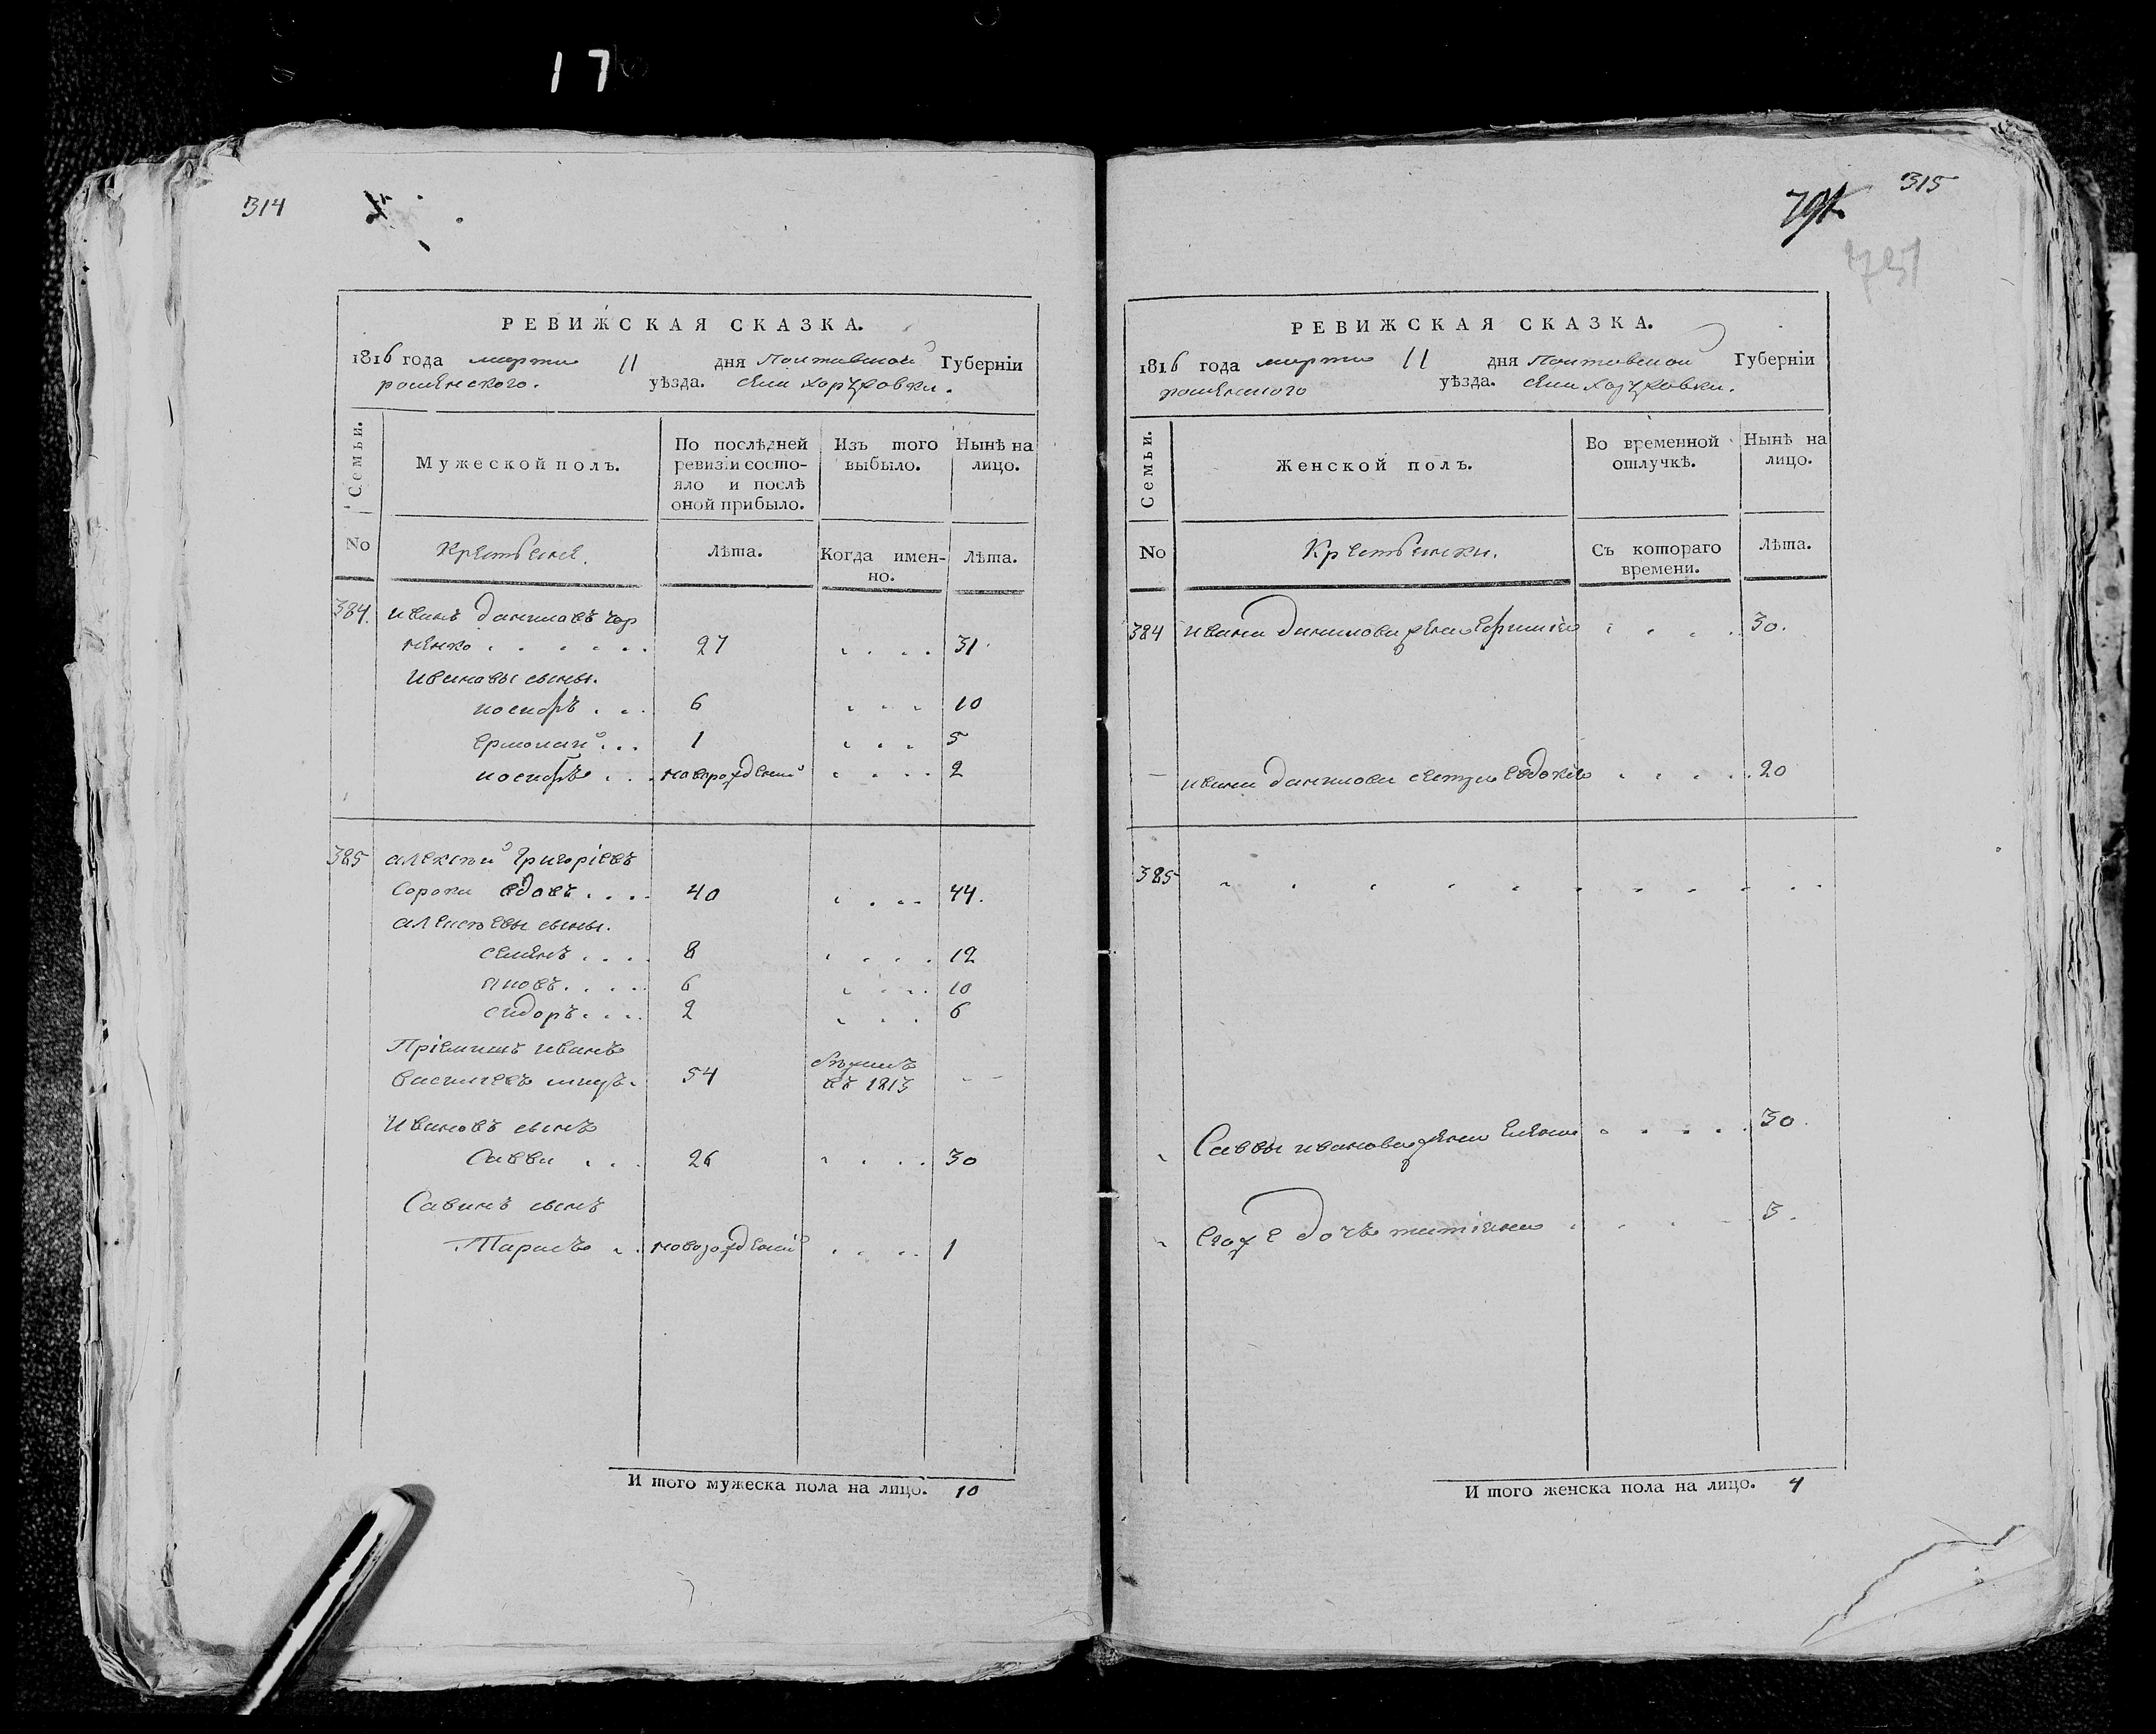 17
314
РЕВИЖСКАЯ СКАЗКА.
1816 года марта 11 дня Полтавской Губерніи
роменского. уѣзда. села
Семьи.
Мужеской полъ.
По послѣдней ревизіи состояло и послѣ оной прибыло.
Изъ того выбыло.
Нынѣ на лицо.
No
Крестьяне.
Лѣта.
Когда именно.
Лѣта.
384. Иванъ Даниловъ
менко . . . . . . 27 . . . . 31.
Ивановы сыны.
иосифъ . . . 6 . . . 10
Ермолай . . . 1 . . . 5
иосифъ . . . новорожденый . . . . 2
385 алексѣй Григоріевъ
Сорока вдовъ . . . . 40 . . . . 44.
алексѣевы сыны.
семенъ . . . . 8 . . . . 12
яковъ . . . . 6 . . . . 10
сидоръ . . . . 2 . . . 6
Пріемышъ иванъ
василевъ 54 въ 1813 — —
Ивановъ сынъ
Савва . . . 26 . . . . 30
Савинъ сынъ
Тарасъ . . новорожденый . . . . 1
И того мужеска пола на лицо. 10
315
791
РЕВИЖСКАЯ СКАЗКА.
1816 года марта 11 дня Полтавской Губерніи
роменского уѣзда. села
Семьи.
Женской полъ.
Во временной отлучкѣ.
Нынѣ на лицо.
No
Крестьянки.
Съ котораго времени.
Лѣта.
384 ивана данилова жена Ефимія . . . . 30.
— ивана данилова сестра Евдокія . . . . . 20
385 . . . . . . . . . . . .
Саввы иванова жена Елена . . . . . 30.
Его же дочь татіяна . . . . 3.
И того женска пола на лицо. 4